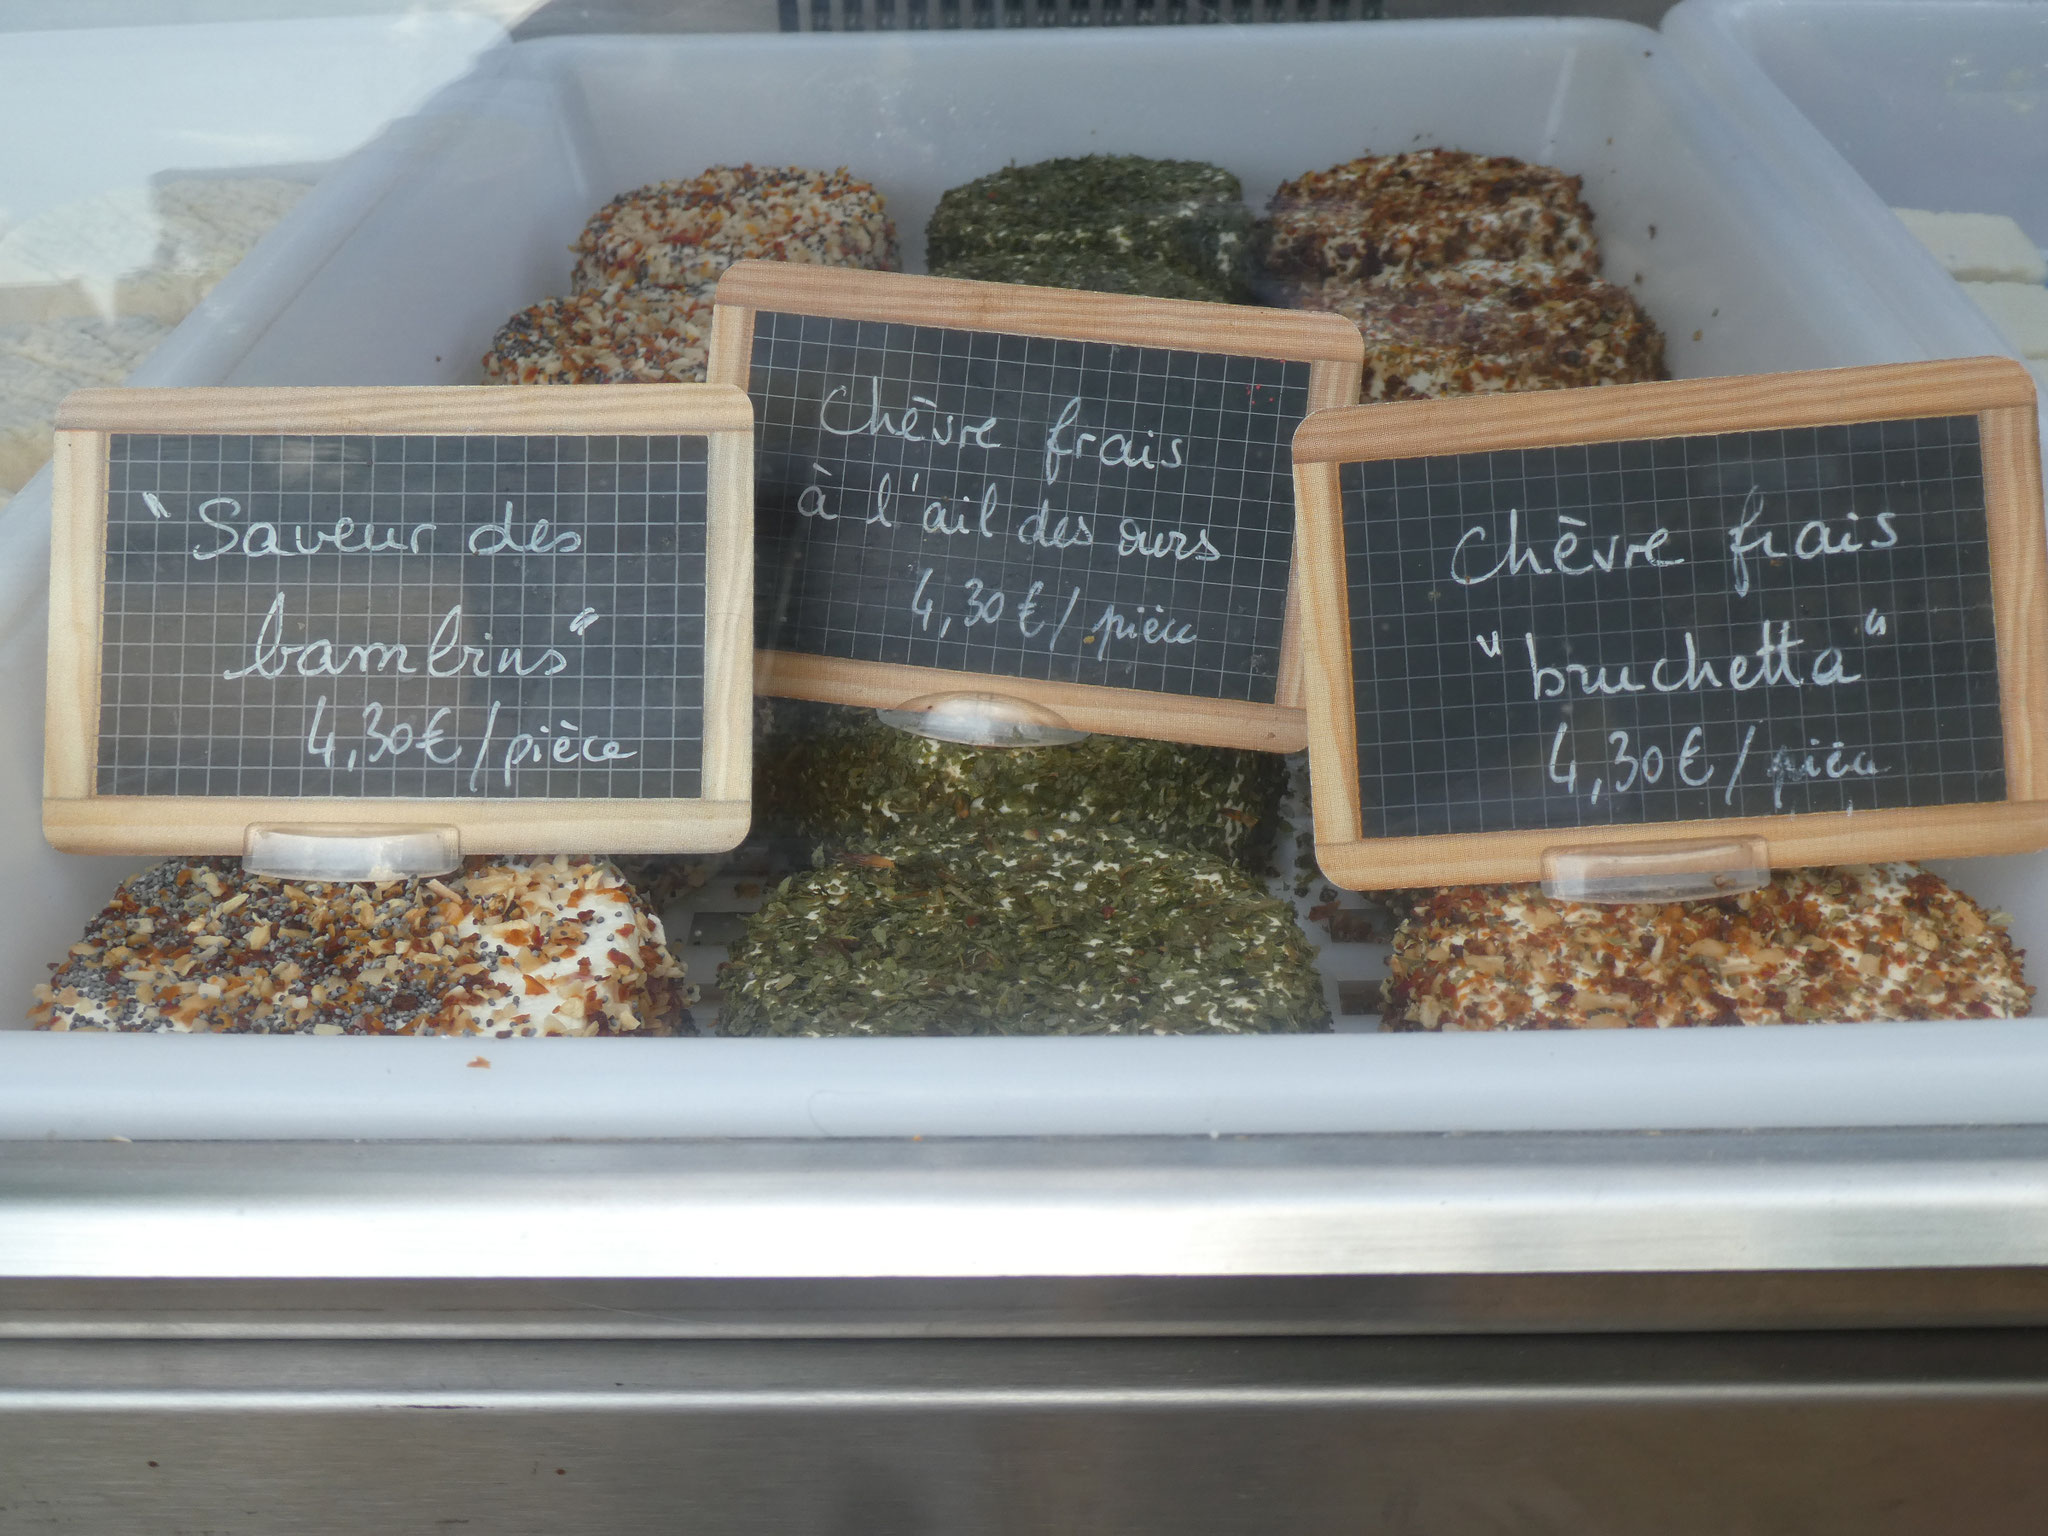 "Saveur des
bambins"
4,30€/pièce
Chèvre frais
à l'ail des ours
4,30€/pièce
Chèvre frais
"bruchetta"
4,30€/pièce